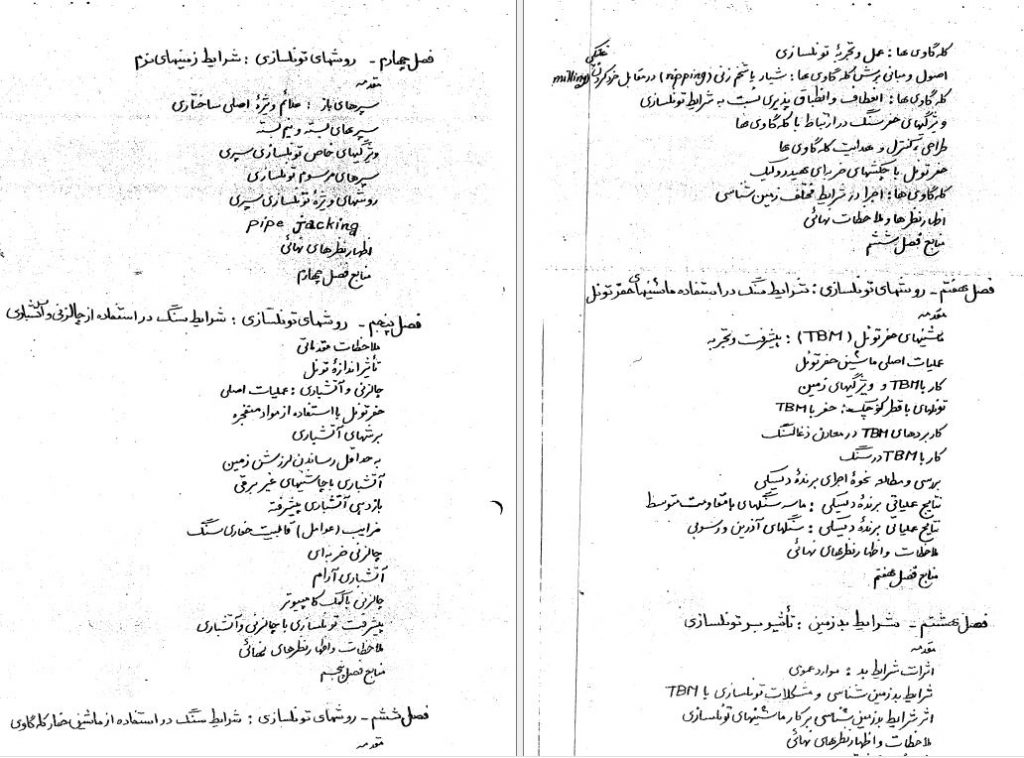 فصل چهارم - روشهای تونلسازی : شرایط زمینهای نرم
مقدمه
سپرهای باز : علائم ویژهٔ اصلی ساختاری
سپرهای بسته و نیم بسته
ویژگیهای خاص تونلسازی سپری
سپرهای مرسوم تونلسازی
روشهای ویژهٔ تونلسازی سپری
pipe jacking
اظهار نظرهای نهائی
منابع فصل چهارم
فصل پنجم - روشهای تونلسازی : شرایط سنگ در استفاده از چالزنی و آتشباری
ملاحظات مقدماتی
تأثیر اندازهٔ تونل
چالزنی و آتشباری : عملیات اصلی
حفر تونل با استفاده از مواد منفجره
برشهای آتشباری
به حداقل رساندن لرزش زمین
آتشباری با چاشنیهای غیر برقی
بازدهی آتشباری پیشرفته
ضرایب (عوامل) قابلیت حفاری سنگ
چالزنی ضربه‌ای
آتشباری آرام
چالزنی با کمک کامپیوتر
پیشرفت تونلسازی با چالزنی و آتشباری
ملاحظات و اظهار نظرهای نهائی
منابع فصل پنجم
فصل ششم - روشهای تونلسازی : شرایط سنگ در استفاده از ماشین حفار کله گاوی
مقدمه
کله گاوی ها : عمل و تجربهٔ تونلسازی
اصول و مبانی برش کله گاوی ها : شیار یا شخم زنی (ripping) در مقابل خرد کردن غلتکی milling
کله گاوی ها : انعطاف و انطباق پذیری نسبت به شرایط تونلسازی
ویژگیهای حفر سنگ در ارتباط با کله گاوی ها
طراحی، کنترل و هدایت کله گاوی ها
حفر تونل با چکشهای ضربه‌ای هیدرولیک
کله گاوی ها : اجرا در شرایط مختلف زمین شناسی
اظهار نظرها و ملاحظات نهائی
منابع فصل ششم
فصل هفتم - روشهای تونلسازی : شرایط سنگ در استفاده ماشینهای حفر تونل
مقدمه
ماشینهای حفر تونل (TBM) : پیشرفت و تجربه
عملیات اصلی ماشین حفر تونل
کار با TBM و ویژگیهای زمین
تونلهای با قطر کوچک : حفر با TBM
کاربردهای TBM در معادن ذغالسنگ
کار با TBM در سنگ
بررسی و مطالعه نحوهٔ اجرای برندهٔ دیسکی
نتایج عملیاتی برندهٔ دیسکی : ماسه سنگهای با مقاومت متوسط
نتایج عملیاتی برندهٔ دیسکی : سنگهای آذرین و رسوبی
ملاحظات و اظهار نظرهای نهائی
منابع فصل هفتم
فصل هشتم - شرایط بد زمین : تأثیر بر تونلسازی
مقدمه
اثرات شرایط بد : موارد عمومی
شرایط بد زمین شناسی و مشکلات تونلسازی با TBM
اثر شرایط بد زمین شناسی بر کار ماشینهای تونلسازی
ملاحظات و اظهار نظرهای نهائی